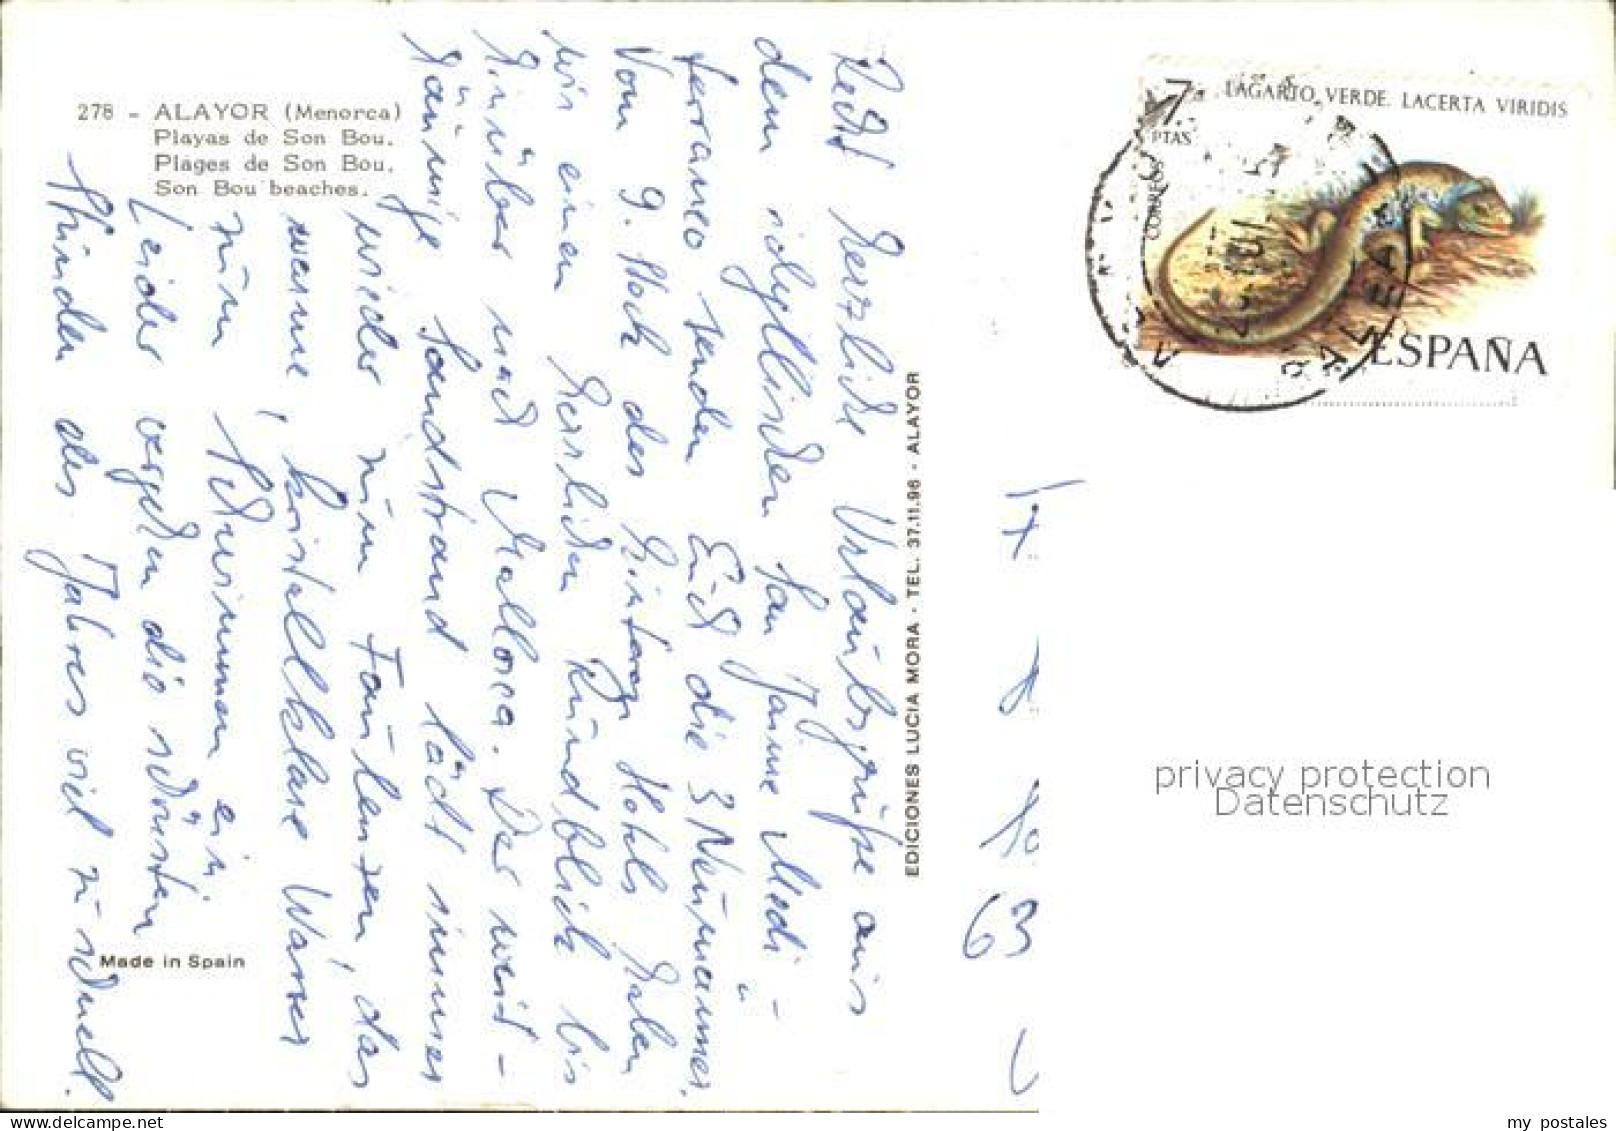 278 - ALAYOR (Menorca)
Playas de Son Bou.
Plages de Son Bou.
Son Bou beaches.
Recht herzliche Urlaubsgrüße aus
dem idyllischen San Jaime Medi-
terraneo senden Euch die 3 Neumänner.
Vom 9. Stock des Hotels haben
wir einen herrlichen Rundblick bis
hinüber nach Mallorca. Der weit-
räumige Sandstrand lädt immer
wieder zum Faulenzen, das
warme, kristallklare Wasser
zum Schwimmen ein.
Leider vergehen die schönsten
Stunden des Jahres viel zu schnell.
Made in Spain
EDICIONES LUCIA MORA - TEL. 37.11.96 - ALAYOR
7 PTAS
CORREOS
LAGARTO VERDE. LACERTA VIRIDIS
ESPAÑA
63
privacy protection
Datenschutz
my postales